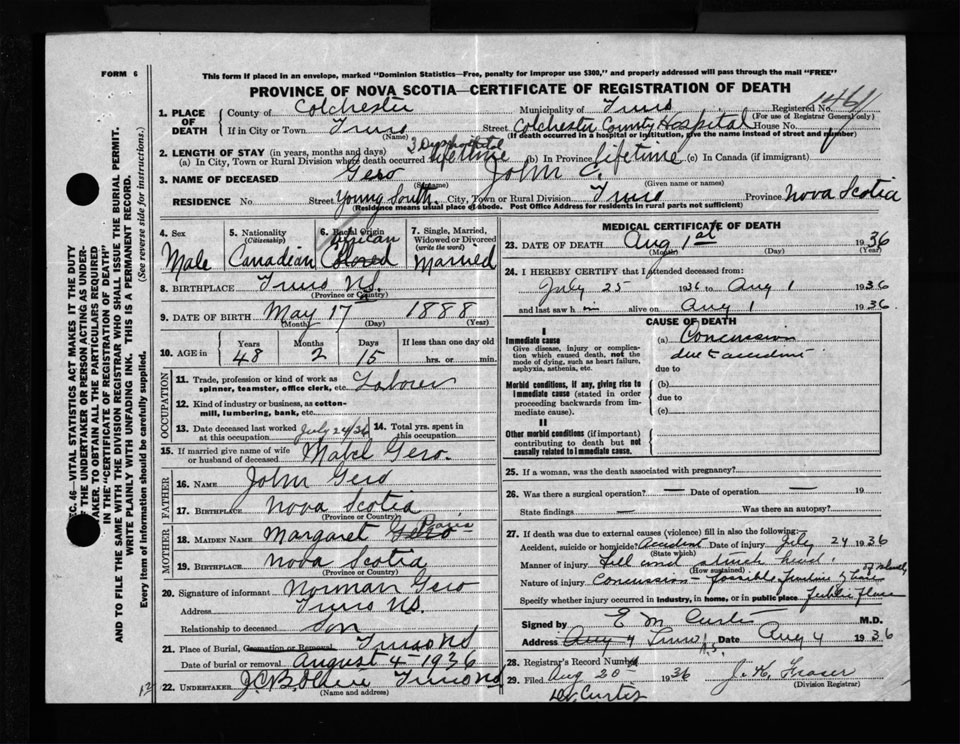 FORM 6
This form if placed in an envelope, marked "Dominion Statistics—Free, penalty for improper use $300," and properly addressed will pass through the mail "FREE"
PROVINCE OF NOVA SCOTIA—CERTIFICATE OF REGISTRATION OF DEATH
1. PLACE OF DEATH
County of Colchester Municipality of Truro Registered No. 1461
(For use of Registrar General only)
If in City or Town Truro Street Colchester County Hospital House No.
(Name) (If death occurred in a hospital or institution, give the name instead of street and number)
2. LENGTH OF STAY (in years, months and days)
(a) In City, Town or Rural Division where death occurred lifetime (b) In Province lifetime (c) In Canada (if immigrant)
3. NAME OF DECEASED Gero John C.
(Surname) (Given name or names)
RESIDENCE No. Street Young South City, Town or Rural Division Truro Province Nova Scotia
(Residence means usual place of abode. Post Office Address for residents in rural parts not sufficient)
4. Sex Male
5. Nationality (Citizenship) Canadian
6. Racial Origin Colored
7. Single, Married, Widowed or Divorced (write the word) Married
8. BIRTHPLACE Truro NS.
(Province or Country)
9. DATE OF BIRTH May 17 1888
(Month) (Day) (Year)
10. AGE in Years 48 Months 2 Days 15 If less than one day old
hrs. or min.
OCCUPATION
11. Trade, profession or kind of work as spinner, teamster, office clerk, etc. Laborer
12. Kind of industry or business, as cotton-mill, lumbering, bank, etc.
13. Date deceased last worked at this occupation July 24/36 14. Total yrs. spent in this occupation
15. If married give name of wife or husband of deceased Mabel Gero.
FATHER
16. NAME John Gero
17. BIRTHPLACE Nova Scotia
(Province or Country)
MOTHER
18. MAIDEN NAME Margaret Gero
19. BIRTHPLACE Nova Scotia
(Province or Country)
20. Signature of informant Norman Gero
Address Truro NS.
Relationship to deceased Son
21. Place of Burial, Cremation or Removal Truro NS
Date of burial or removal August 4 - 1936
22. UNDERTAKER Truro NS
(Name and address)
MEDICAL CERTIFICATE OF DEATH
23. DATE OF DEATH Aug 1st 1936
(Month) (Day) (Year)
24. I HEREBY CERTIFY that I attended deceased from:
July 25 1936 to Aug 1 1936
and last saw him alive on Aug 1 1936
CAUSE OF DEATH
I
Immediate cause
Give disease, injury or complication which caused death, not the mode of dying, such as heart failure, asphyxia, asthenia, etc.
(a) Concussion
due to accident
due to
Morbid conditions, if any, giving rise to immediate cause (stated in order proceeding backwards from immediate cause).
(b)
due to
(c)
II
Other morbid conditions (if important) contributing to death but not causally related to immediate cause.
25. If a woman, was the death associated with pregnancy?
26. Was there a surgical operation? — Date of operation — 19
State findings — Was there an autopsy?
27. If death was due to external causes (violence) fill in also the following:
Accident, suicide or homicide? Accident Date of injury July 24 1936
(State which)
Manner of injury Fell and struck head.
(How sustained)
Nature of injury Concussion - possible
Specify whether injury occurred in industry, in home, or in public place Public Place
Signed by E M Curtis M.D.
Address Aug 4 Truro N.S. Date Aug 4 1936
28. Registrar's Record Number
29. Filed Aug 20 1936 J. H. Fraser
(Division Registrar)
Dr. Curtis
SEC. 46—VITAL STATISTICS ACT MAKES IT THE DUTY
OF THE UNDERTAKER OR PERSON ACTING AS UNDER-
TAKER, TO OBTAIN ALL THE PARTICULARS REQUIRED
IN THE "CERTIFICATE OF REGISTRATION OF DEATH"
AND TO FILE THE SAME WITH THE DIVISION REGISTRAR WHO SHALL ISSUE THE BURIAL PERMIT.
WRITE PLAINLY WITH UNFADING INK. THIS IS A PERMANENT RECORD.
Every item of information should be carefully supplied. (See reverse side for instructions.)